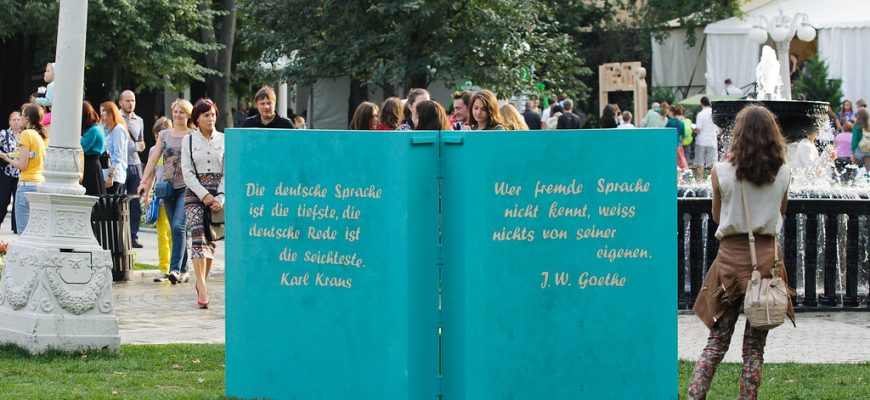 Die deutsche Sprache
ist die tiefste, die
deutsche Rede ist
die seichteste.
Karl Kraus
Wer fremde Sprache
nicht kennt, weiss
nichts von seiner
eigenen.
J.W. Goethe